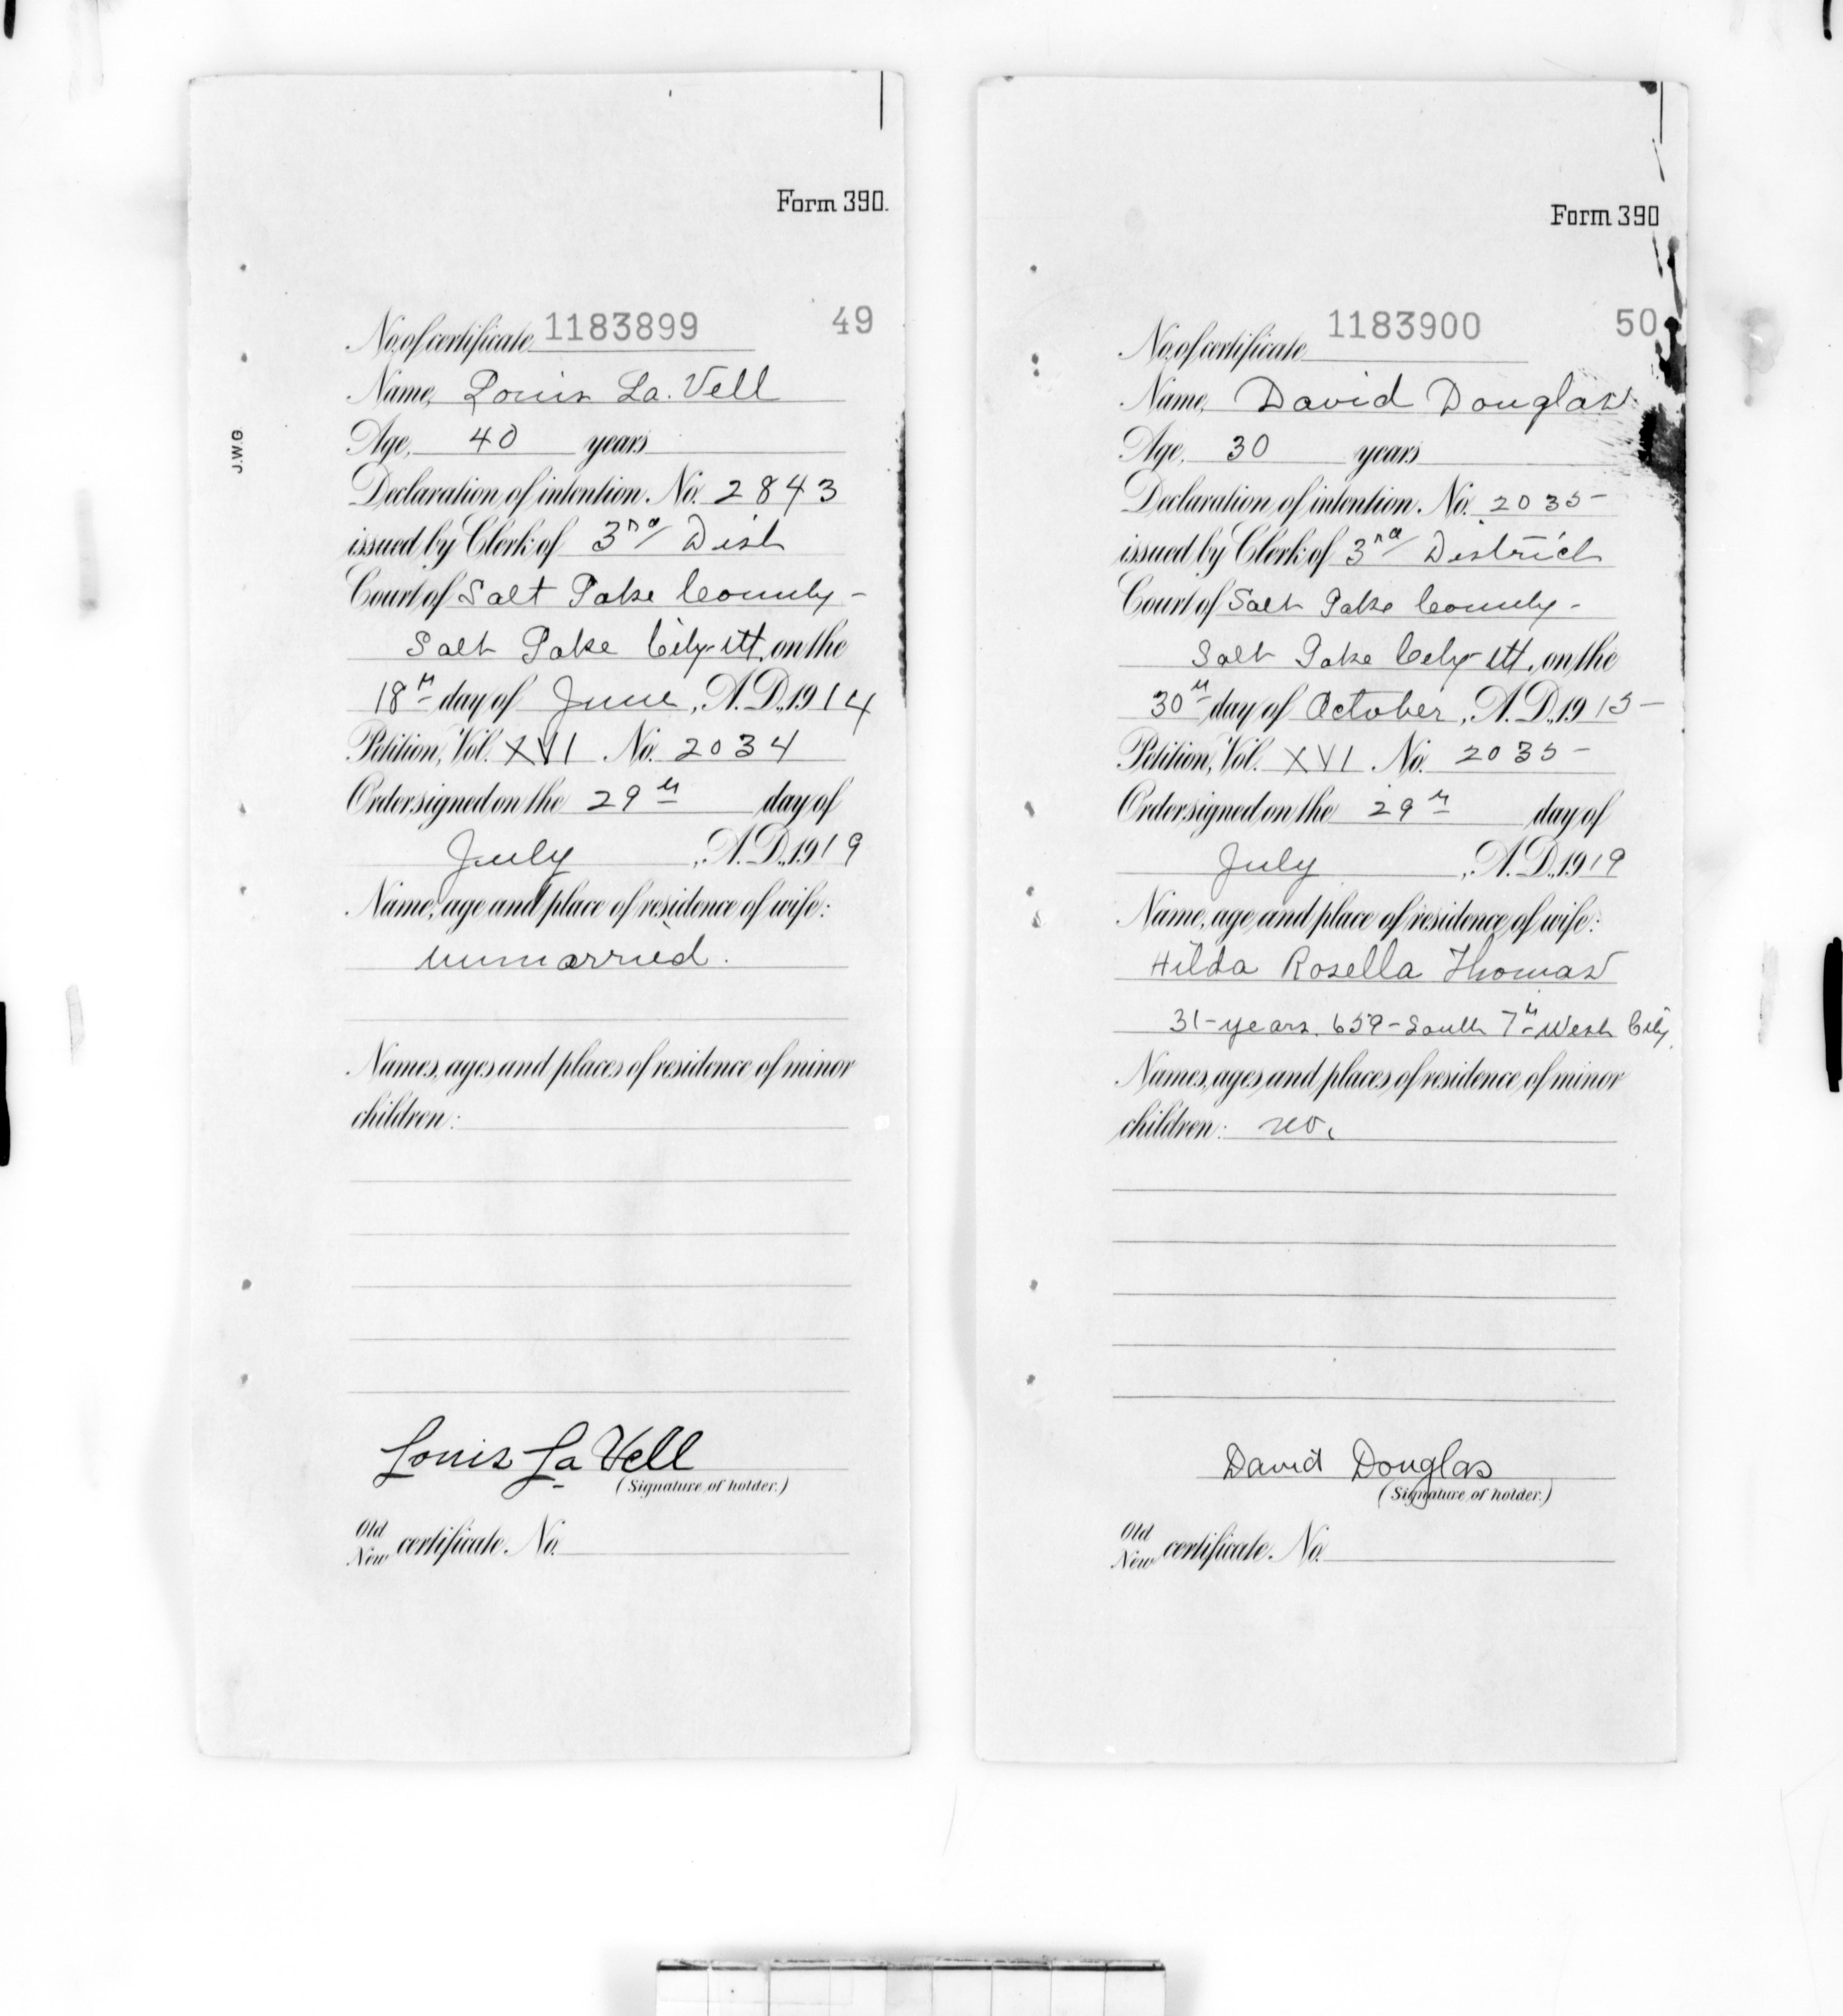 Form 390.
No. of certificate 1183899 49
Name, Louis La. Vell
Age, 40 years
Declaration of intention. No. 2843
issued by Clerk of 3rd Dist
Court of Salt Lake County -
Salt Lake City - Ut, on the
18th day of June, A. D., 1914
Petition, Vol. XVI No. 2034
Order signed on the 29th day of
July, A. D., 1919
Name, age and place of residence of wife:
unmarried.
Names, ages and places of residence of minor
children:
Louis La Vell
(Signature of holder.)
Old
New certificate. No.
J.W.G
Form 390
No. of certificate 1183900 50
Name, David Douglas
Age, 30 years
Declaration of intention. No. 2035-
issued by Clerk of 3rd District
Court of Salt Lake County -
Salt Lake City - Ut, on the
30th day of October, A. D., 1915-
Petition, Vol. XVI No. 2035-
Order signed on the 29th day of
July, A. D., 1919
Name, age and place of residence of wife:
Hilda Rosella Thomas
31-years. 659-South 7th West City.
Names, ages and places of residence of minor
children: no.
David Douglas
(Signature of holder.)
Old
New certificate. No.